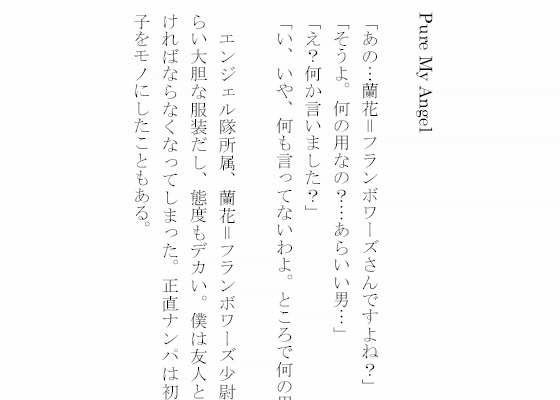 Pure My Angel
「あの…蘭花＝フランボワーズさんですよね？」
「そうよ。何の用なの？…あらいい男…」
「え？何か言いました？」
「い、いや、何も言ってないわよ。ところで何の
エンジェル隊所属、蘭花＝フランボワーズ少尉
らい大胆な服装だし、態度もデカい。僕は友人と
ければならなくなってしまった。正直ナンパは初
子をモノにしたこともある。